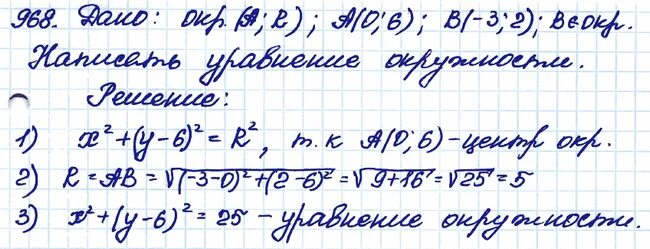 968. Дано: окр. (А; R); А(0; 6); В(-3; 2); В∈окр.
Написать уравнение окружности.
Решение:
1) x² + (y - 6)² = R², т. к А(0; 6) - центр окр.
2) R = AB = √(-3-0)² + (2-6)² = √9+16 = √25 = 5
3) x² + (y - 6)² = 25 - уравнение окружности.